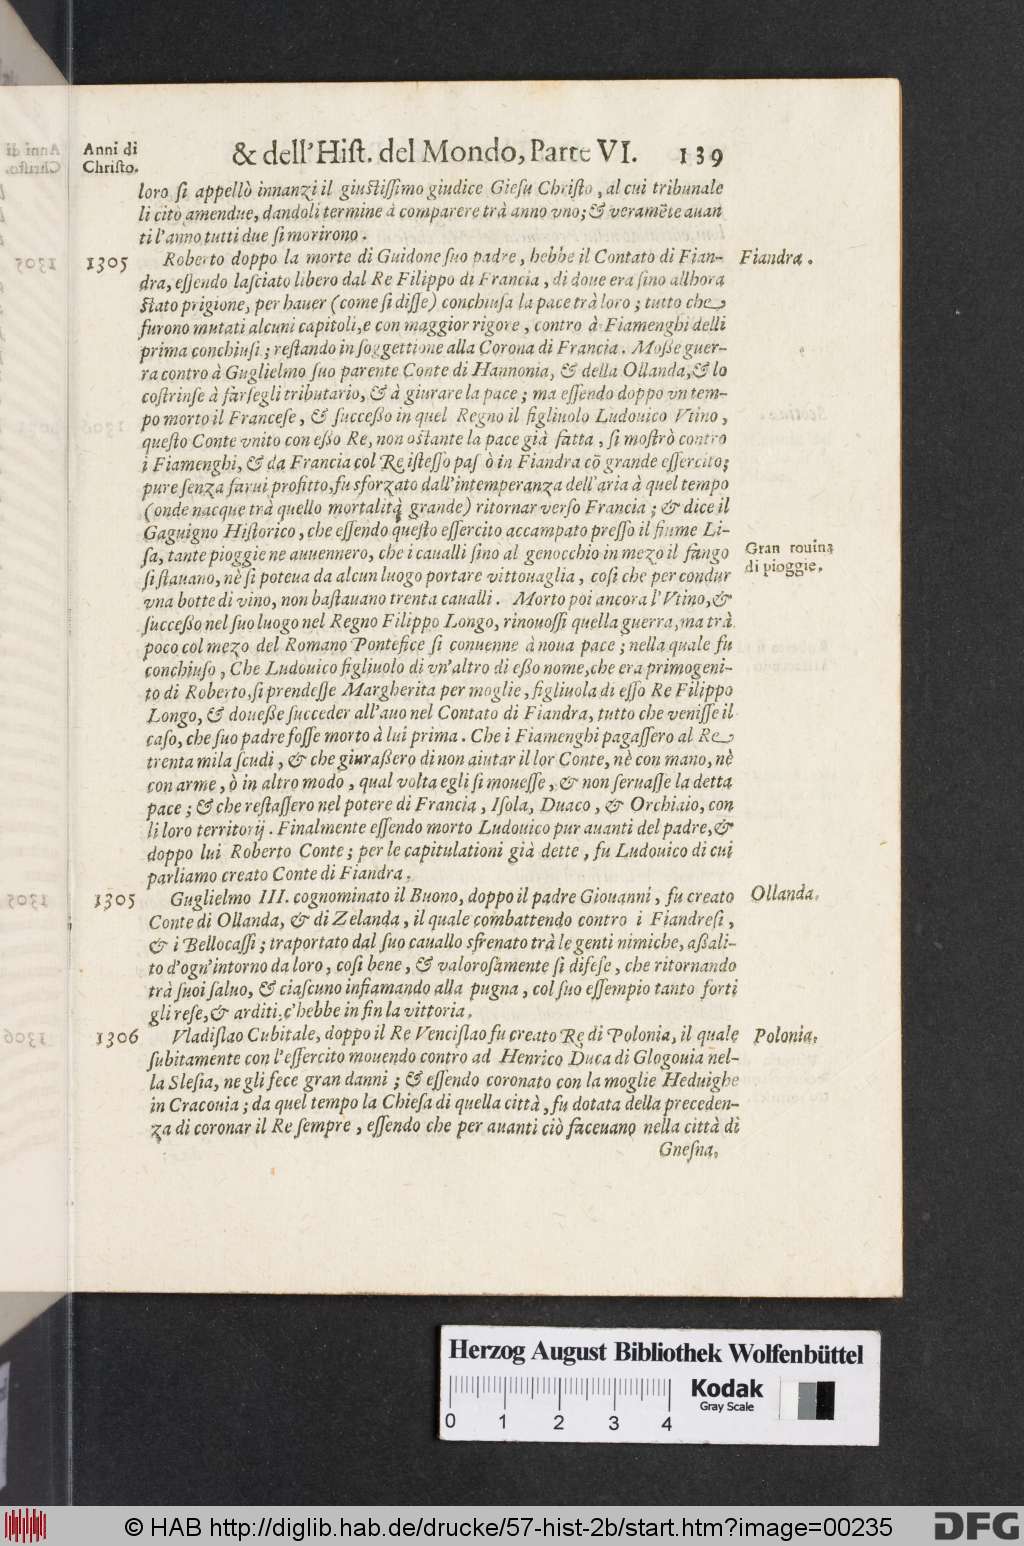 Anni di
Christo.
& dell'Hist. del Mondo, Parte VI. 139
loro si appellò innanzi il giustissimo giudice Giesu Christo, al cui tribunale
li citò amendue, dandoli termine à comparere trà anno vno; & veramẽte auan
ti l'anno tutti due si morirono.
1305 Roberto doppo la morte di Guidone suo padre, hebbe il Contato di Fian- Fiandra.
dra, essendo lasciato libero dal Re Filippo di Francia, di doue era sino allhora
stato prigione, per hauer (come si disse) conchiusa la pace trà loro; tutto che
furono mutati alcuni capitoli, e con maggior rigore, contro à Fiamenghi delli
prima conchiusi; restando in soggettione alla Corona di Francia. Mosse guer-
ra contro à Guglielmo suo parente Conte di Hannonia, & della Ollanda, & lo
costrinse à farsegli tributario, & à giurare la pace; ma essendo doppo vn tem-
po morto il Francese, & successo in quel Regno il figliuolo Ludouico Vtino,
questo Conte vnito con esso Re, non ostante la pace già fatta, si mostrò contro
i Fiamenghi, & da Francia col Re istesso pas ò in Fiandra cõ grande essercito;
pure senza farui profitto, fu sforzato dall'intemperanza dell'aria à quel tempo
(onde nacque trà quello mortalità grande) ritornar verso Francia; & dice il
Gaguigno Historico, che essendo questo essercito accampato presso il fiume Li-
sa, tante pioggie ne auuennero, che i caualli sino al genocchio in mezo il fango
si stauano, nè si poteua da alcun luogo portare vittouaglia, così che per condur
vna botte di vino, non bastauano trenta caualli. Morto poi ancora l'Vtino, &
Gran rouina
di pioggie.
successo nel suo luogo nel Regno Filippo Longo, rinouossi quella guerra, ma trà
poco col mezo del Romano Pontefice si conuenne à noua pace; nella quale fu
conchiuso, Che Ludouico figliuolo di vn'altro di esso nome, che era primogeni-
to di Roberto, si prendesse Margherita per moglie, figliuola di esso Re Filippo
Longo, & douesse succeder all'auo nel Contato di Fiandra, tutto che venisse il
caso, che suo padre fosse morto à lui prima. Che i Fiamenghi pagassero al Re
trenta mila scudi, & che giurassero di non aiutar il lor Conte, nè con mano, nè
con arme, ò in altro modo, qual volta egli si mouesse, & non seruasse la detta
pace; & che restassero nel potere di Francia, Isola, Duaco, & Orchiaio, con
li loro territorij. Finalmente essendo morto Ludouico pur auanti del padre, &
doppo lui Roberto Conte; per le capitulationi già dette, fu Ludouico di cui
parliamo creato Conte di Fiandra.
1305 Guglielmo III. cognominato il Buono, doppo il padre Giouanni, fu creato Ollanda.
Conte di Ollanda, & di Zelanda, il quale combattendo contro i Fiandresi,
& i Bellocassi; traportato dal suo cauallo sfrenato trà le genti nimiche, assali-
to d'ogn'intorno da loro, così bene, & valorosamente si difese, che ritornando
trà suoi saluo, & ciascuno infiamando alla pugna, col suo essempio tanto forti
gli rese, & arditi, c'hebbe in fin la vittoria.
1306 Vladislao Cubitale, doppo il Re Vencislao fu creato Re di Polonia, il quale Polonia.
subitamente con l'essercito mouendo contro ad Henrico Duca di Glogouia nel-
la Slesia, ne gli fece gran danni; & essendo coronato con la moglie Heduighe
in Cracouia; da quel tempo la Chiesa di quella città, fu dotata della preceden-
za di coronar il Re sempre, essendo che per auanti ciò faceuano nella città di
Gnesna,
Herzog August Bibliothek Wolfenbüttel
0 1 2 3 4
Kodak
Gray Scale
© HAB http://diglib.hab.de/drucke/57-hist-2b/start.htm?image=00235
DFG